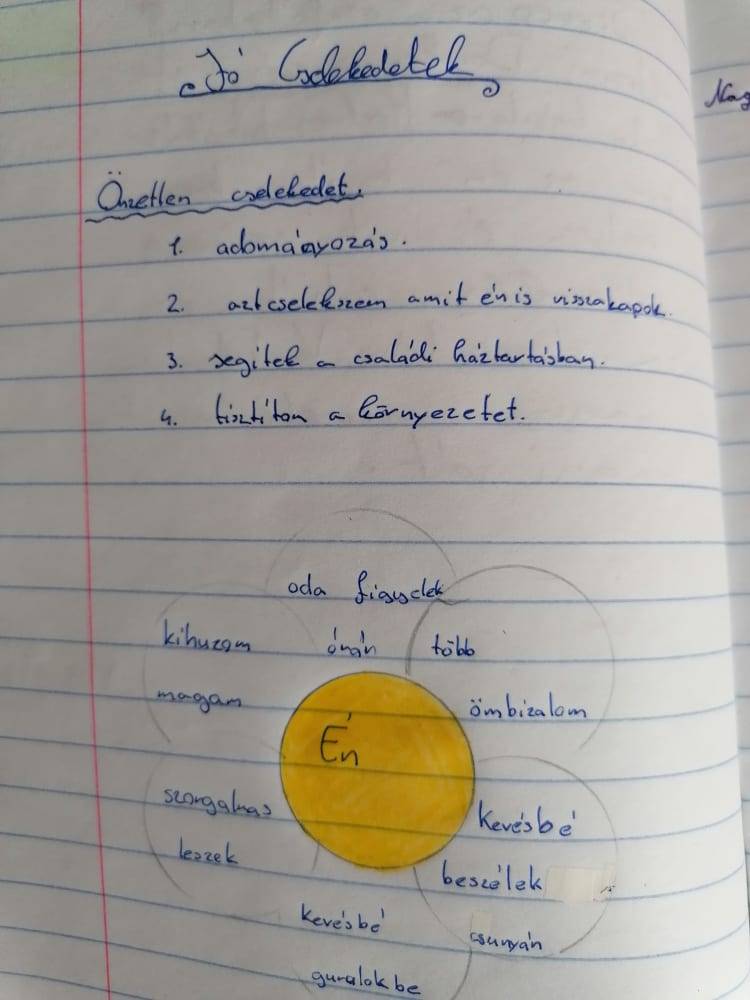 Jó Cselekedetek
Önzetlen cselekedet.
1. adományozás.
2. azt cselekszem amit én is visszakapok.
3. segitek a családi háztartásban.
4. tisztíton a környezetet.
oda figyelek
órán
kihuzom
magam
több
ömbizalom
Én
szorgalmas
leszek
kevésbé
beszélek
csunyán
kevésbé
guralok be